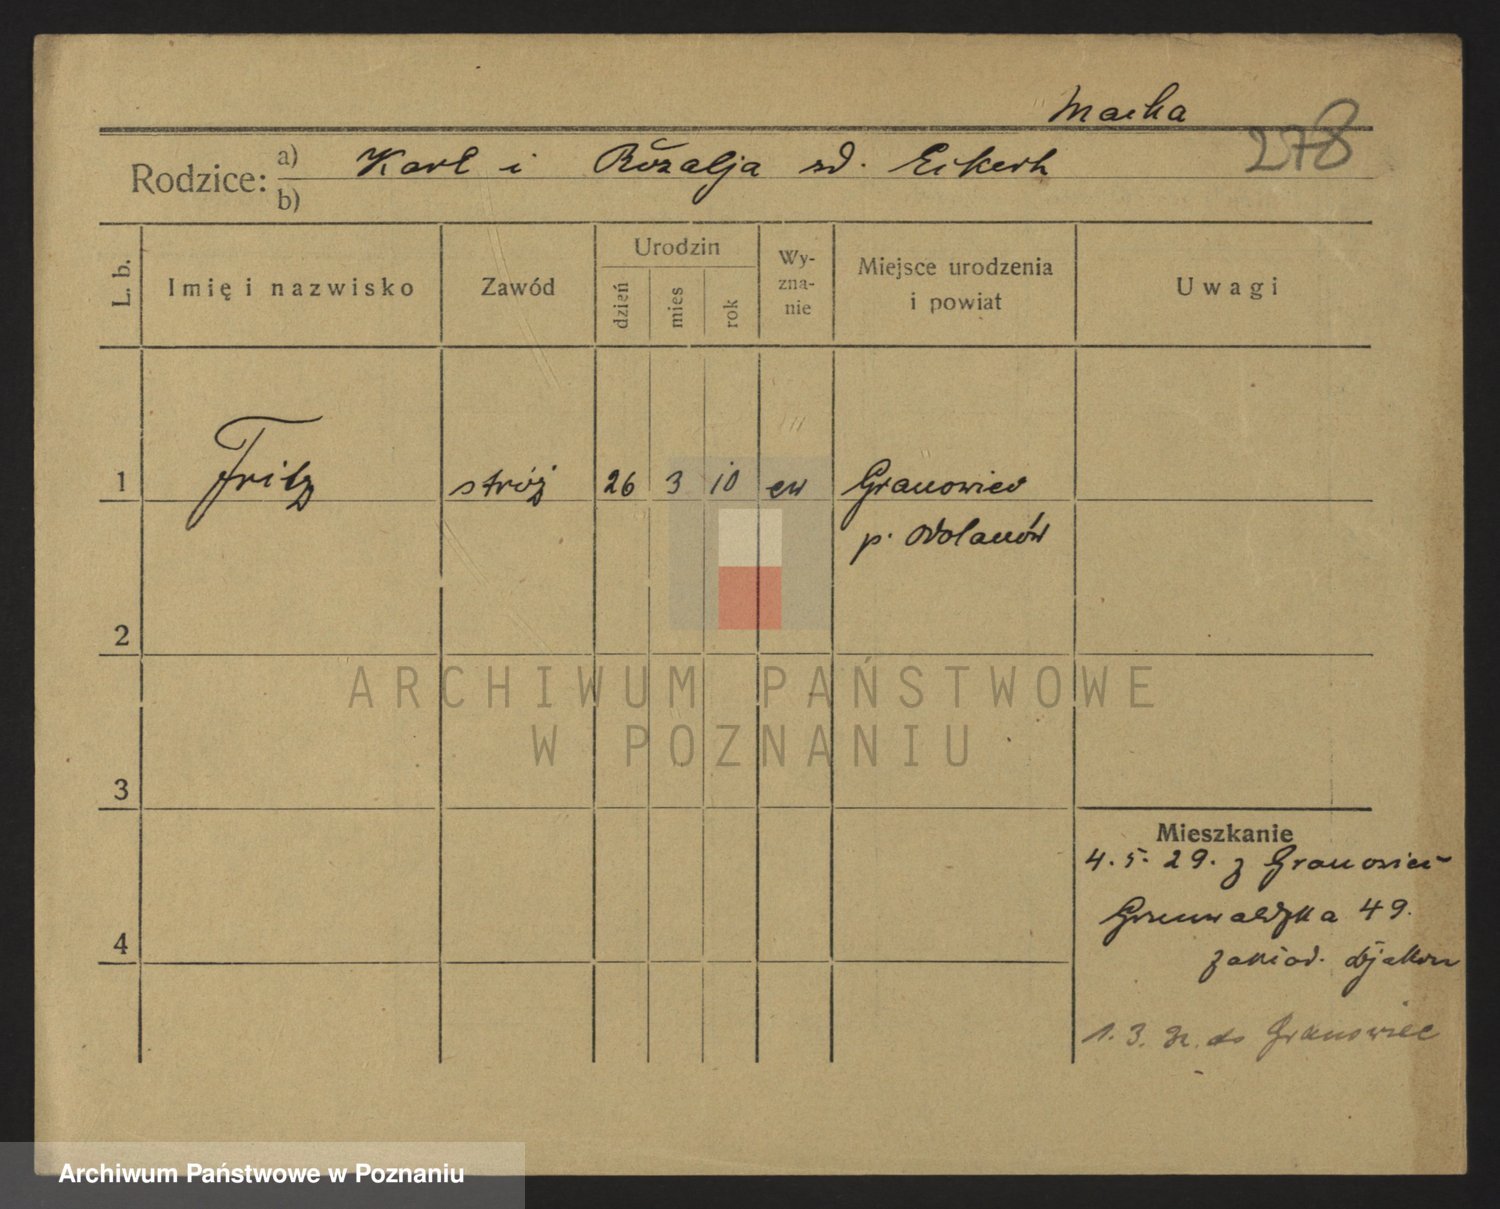 Macha
278
Rodzice: a) Karl i Rozalja zd. Eikert
b)
L. b. Imię i nazwisko Zawód Urodzin dzień mies rok Wy-zna-nie Miejsce urodzenia i powiat Uwagi
1 Fritz stróż 26 3 10 ew Granowiec
p. Odolanów
2
ARCHIWUM PAŃSTWOWE
W POZNANIU
3
Mieszkanie
4. 5. 29. z Granowiec
Grunwaldzka 49.
4
1. 3. do Granowiec
Archiwum Państwowe w Poznaniu